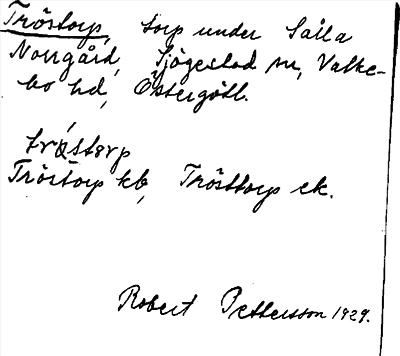 Tröstorp, torp under Salla
Norrgård, Sjögestad sn, Valke-
bo hd, Östergötl.
tròstǫrp
Tröstorp kb, Trösttorp ek.
Robert Pettersson 1929.